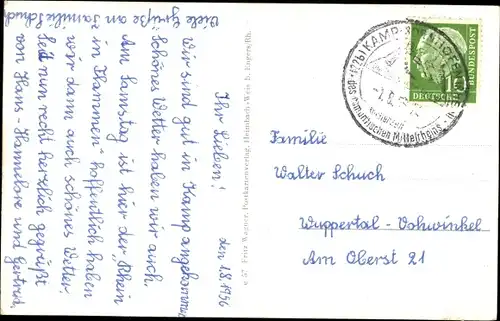 den 1.8.1956
Ihr Lieben!
Wir sind gut in Kamp angekommen
Schönes Wetter haben wir auch.
Am Samstag ist hier der „Rhein
in Flammen" hoffentlich haben
wir dann auch schönes Wetter.
Seid nun recht herzlich gegrüßt
von Hans-Hannelore und Gertrud
Viele Grüße an Familie Schuch
v 57 Fritz Wagner, Postkartenverlag, Heimbach-Weis b. Engers/Rh.
(22b) KAMP-
des romantischen Mittelrheins
DEUTSCHE
BUNDESPOST
10
Familie
Walter Schuch
Wuppertal-Vohwinkel
Am Oberst 21